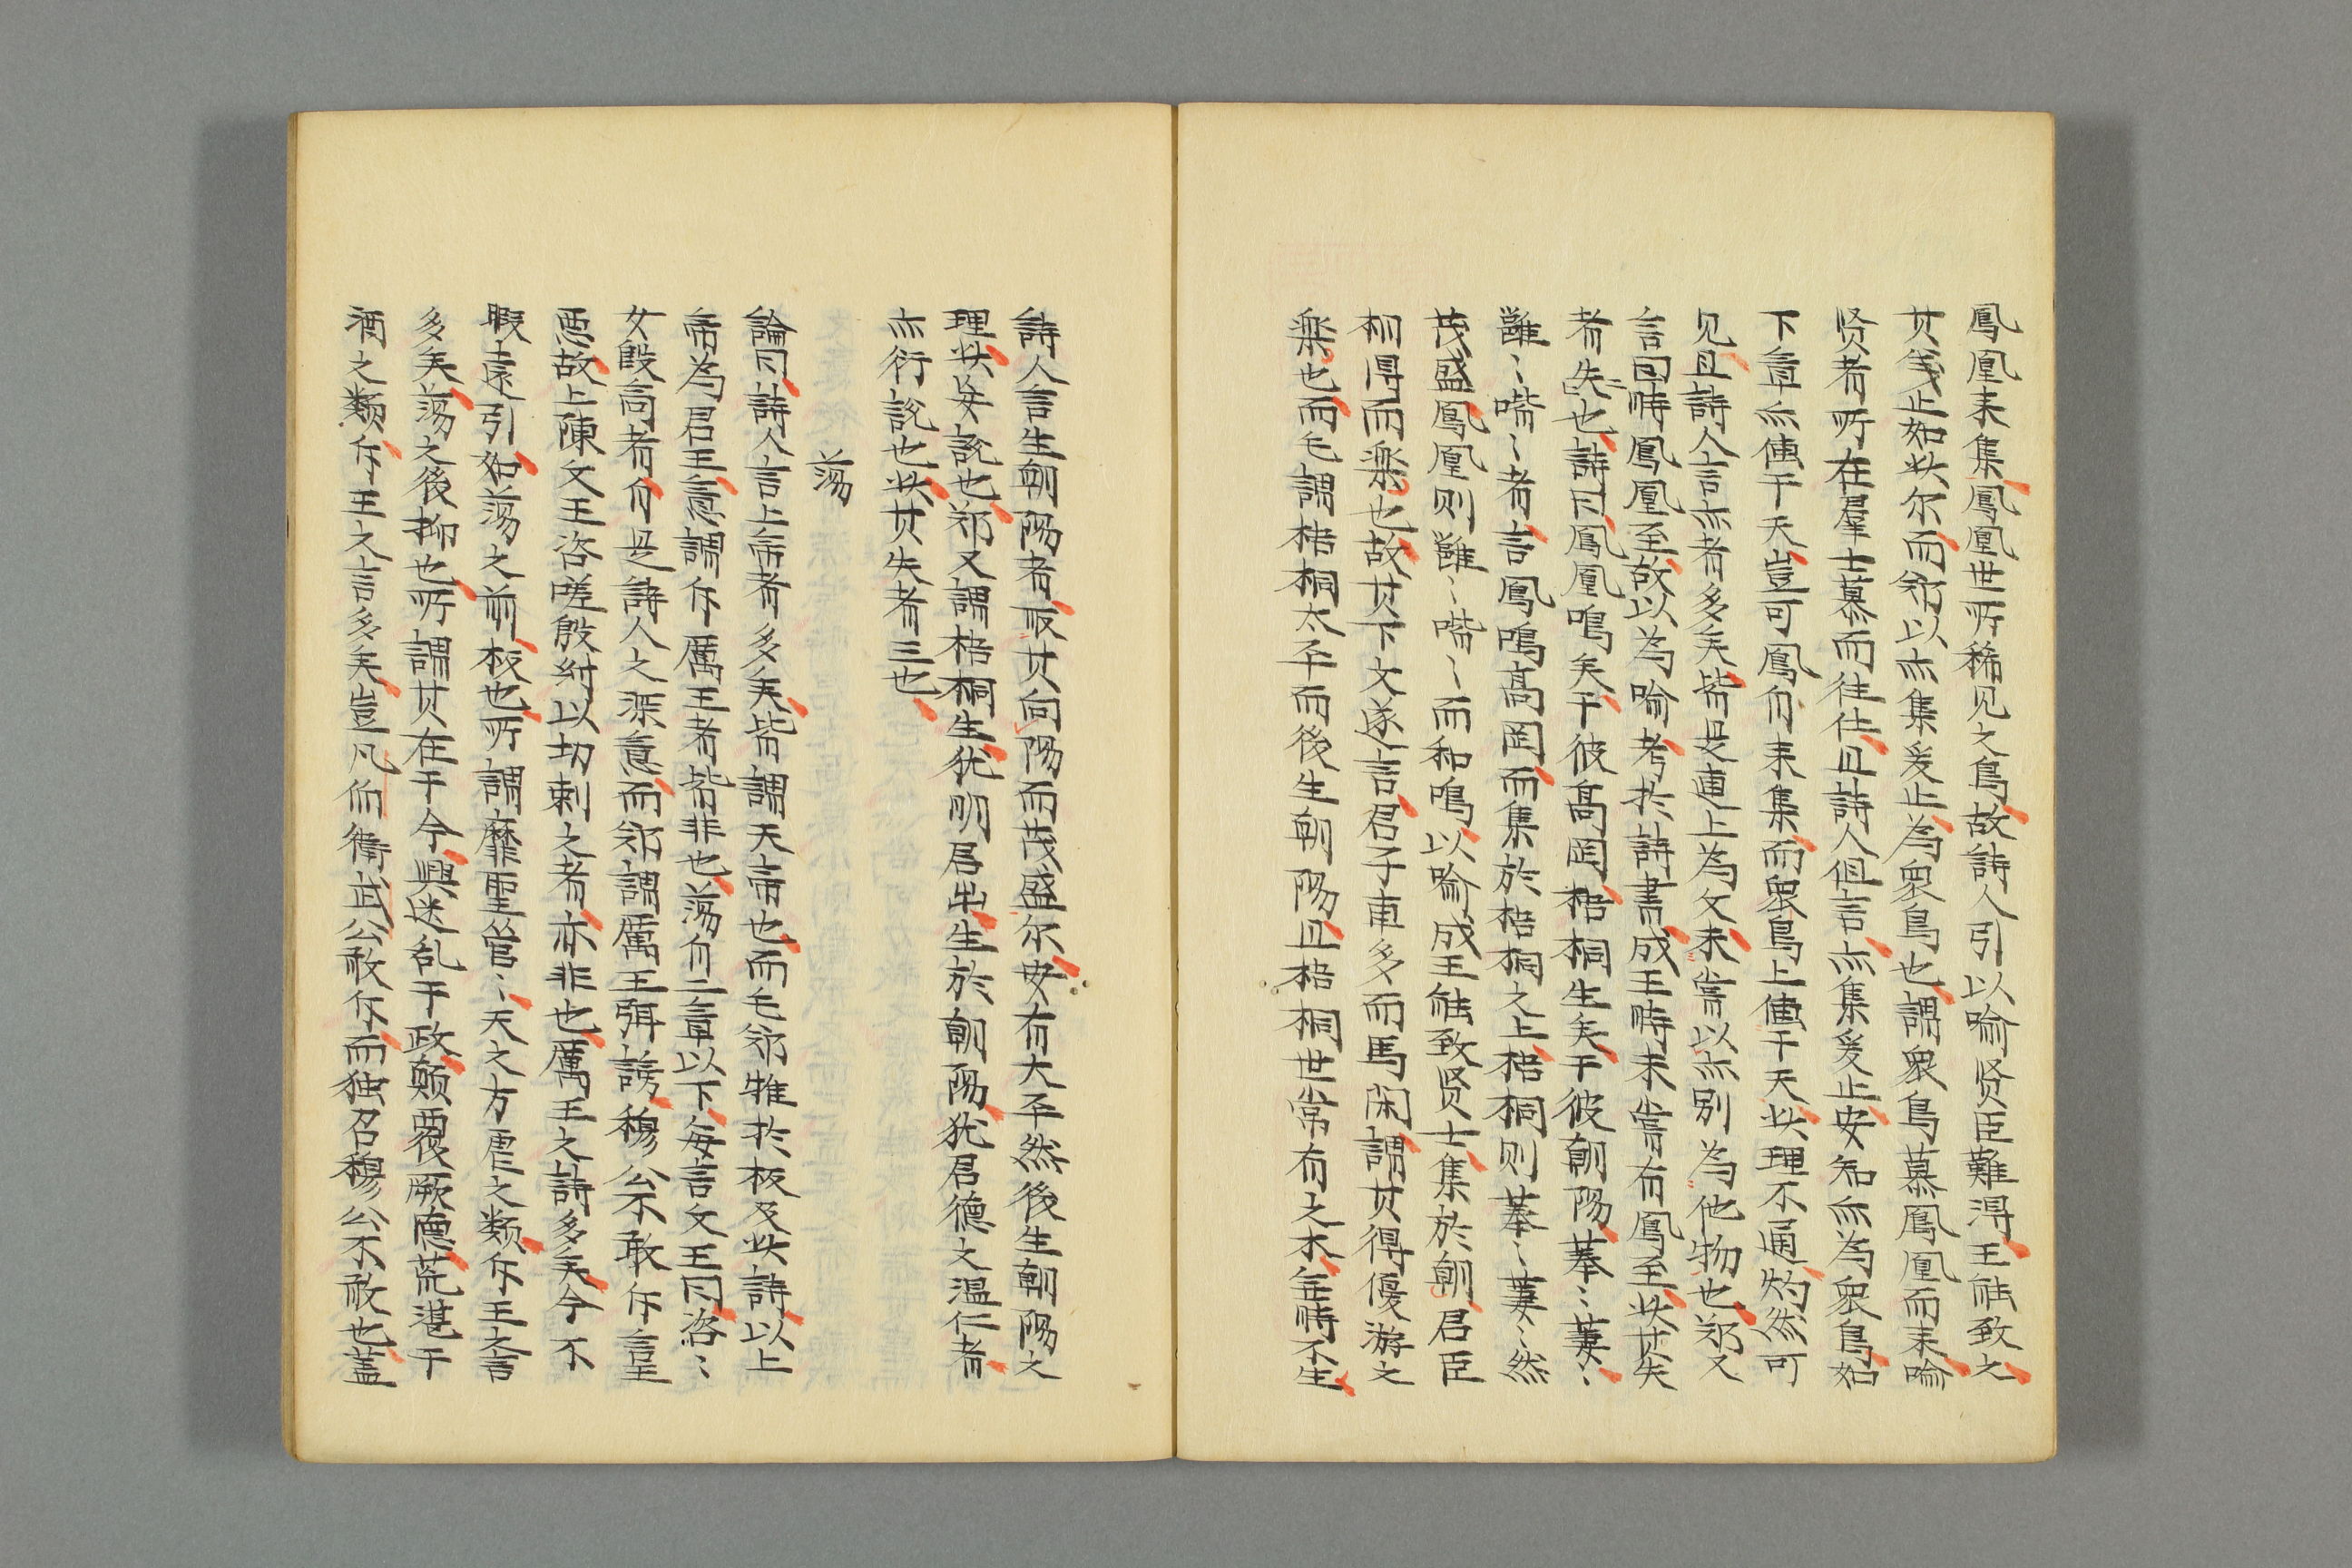 鳳凰来集鳳凰世所稀见之鳥故詩人引以喻贤臣難得王能致之
其義止如此尔而鄭以亦集爰止為衆鳥也謂衆鳥慕鳳凰而来喻
贤者所在羣士慕而往仕且詩人但言亦集爰止安知亦為衆鳥如
下章亦傅于天豈可鳳自来集而衆鳥上傅于天此理不通灼然可
见且詩人言亦者多矣皆是連上為文未甞以亦别為他物也郑又
言因時鳳凰至故以為喻考於詩書成王時未甞有鳳至此其失
者失二也詩曰鳳凰鳴矣于彼高岡梧桐生矣于彼朝陽菶〻萋〻
雝〻喈〻者言鳳鳴高岡而集於梧桐之上梧桐则菶〻萋〻然
茂盛鳳凰则雝〻喈〻而和鳴以喻成王能致贤士集於朝君臣
相得而樂也故其下文遂言君子車多而馬閑謂其得優游之
樂也而毛謂梧桐太平而後生朝陽且梧桐世常有之木無時不生
詩人言生朝陽者取其向陽而茂盛尔安有太平然後生朝陽之
理此妄説也郑又謂梧桐生犹明君出生於朝陽犹君德之温仁者
亦衍説也此其失者三也
蕩
論曰詩人言上帝者多矣皆謂天帝也而毛郑惟於板及此詩以上
帝為君王意謂斥厲王者皆非也蕩自二章以下每言文王曰咨〻
女殷商者自是詩人之深意而郑謂厲王弭謗穆公不敢斥言王
恶故上陳文王咨嗟殷紂以切刺之者亦非也厲王之詩多矣今不
暇遠引如蕩之前板也所謂靡聖管〻天之方虐之類斥王之言
多矣蕩之後抑也所謂其在于今興迷乱于政颠覆厥德荒湛于
酒之類斥王之言多矣豈凡伯衛武公敢斥而独召穆公不敢也蓋